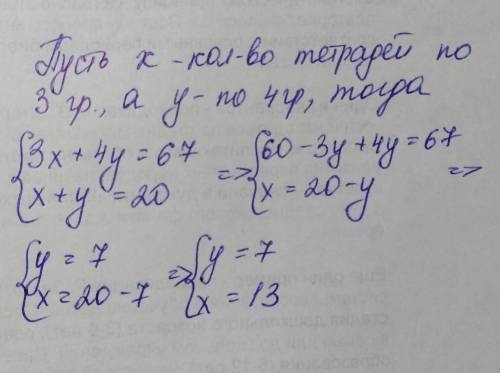 Пусть x - кол-во тетрадей по
3 гр., а y - по 4 гр, тогда
{3x + 4y = 67 => {60 - 3y + 4y = 67
{x + y = 20 {x = 20 - y =>
{y = 7 => {y = 7
{x = 20 - 7 {x = 13